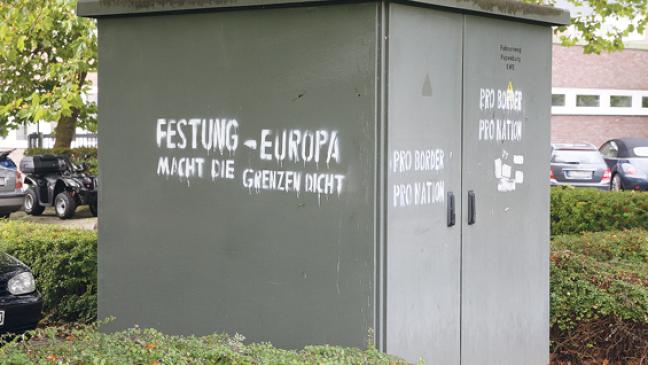 FESTUNG-EUROPA
MACHT DIE GRENZEN DICHT
PRO BORDER
PRO NATION
Papenburg
EWE
PRO BORDER
PRO NATION